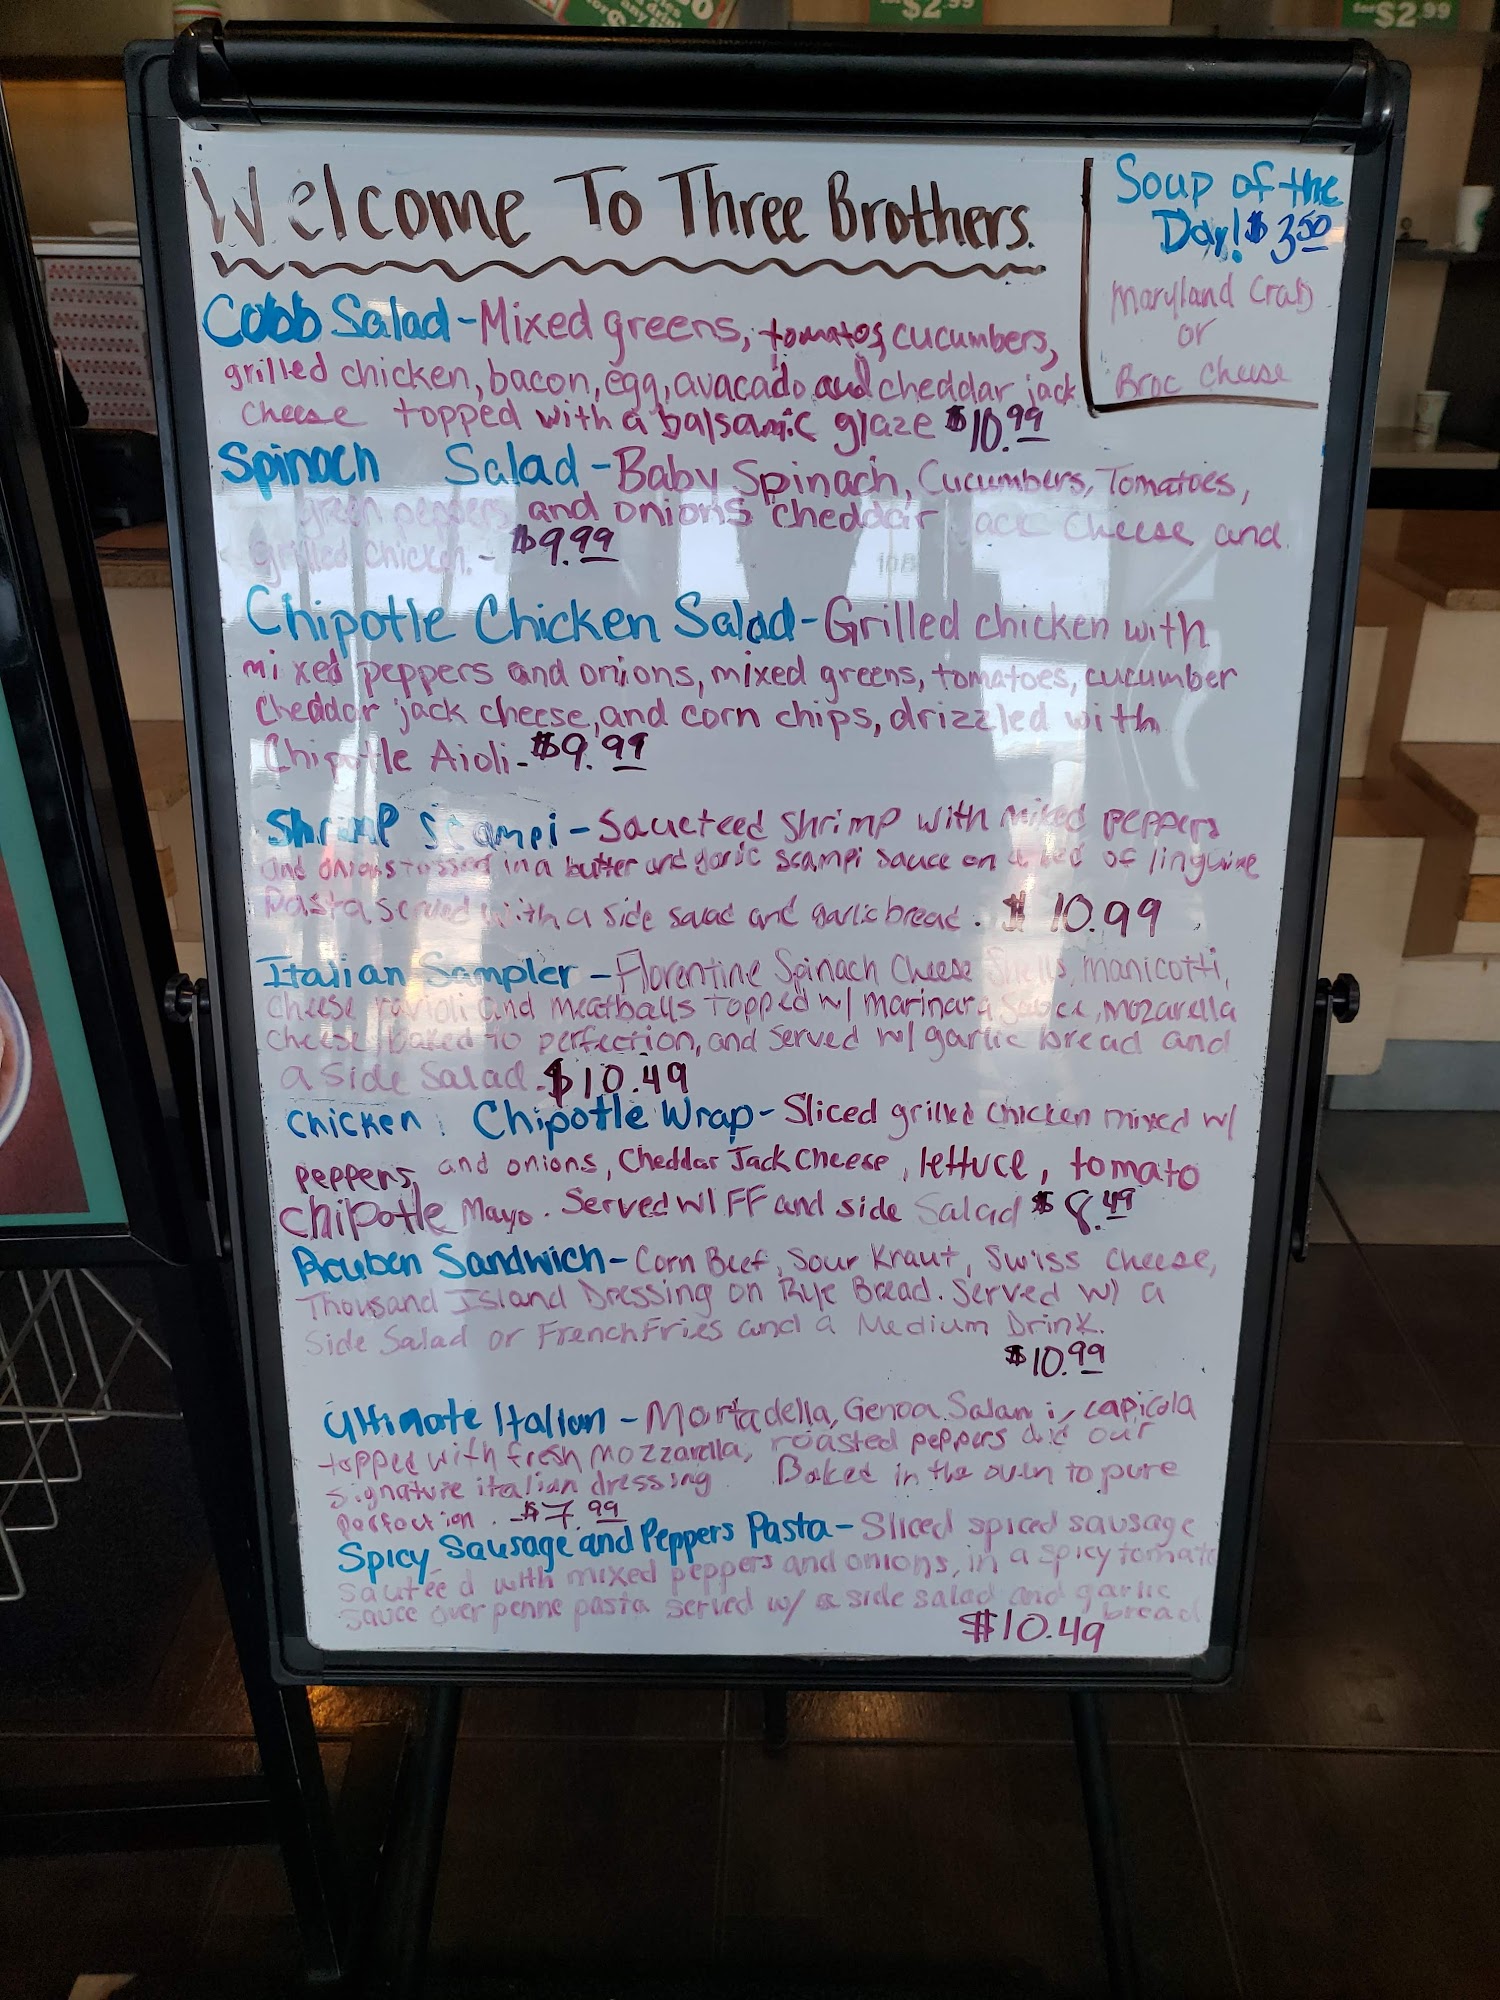 for $2.99
for $2.99
Welcome To Three Brothers.
Soup of the
Day! $3.50
Maryland Crab
or
Broc Cheese
Cobb Salad - Mixed greens, tomatos, cucumbers,
grilled chicken, bacon, egg, avacado and cheddar jack
cheese topped with a balsamic glaze $10.99
Spinach Salad - Baby Spinach, Cucumbers, Tomatoes,
green peppers and onions cheddar jack cheese and
grilled chicken. - $9.99
Chipotle Chicken Salad - Grilled chicken with
mixed peppers and onions, mixed greens, tomatoes, cucumber
cheddar jack cheese, and corn chips, drizzled with
Chipotle Aioli - $9.99
Shrimp Scampi - Saucteed shrimp with mixed peppers
and onions tossed in a butter and garlic scampi sauce on a bed of linguine
Pasta served with a side salad and garlic bread. $10.99
Italian Sampler - Florentine Spinach Cheese Shells, manicotti,
cheese ravioli and meatballs topped w/ marinara sauce, mozarella
cheese, baked to perfection, and served w/ garlic bread and
a side salad - $10.49
Chicken Chipotle Wrap - Sliced grilled chicken mixed w/
peppers, and onions, Cheddar Jack Cheese, lettuce, tomato
chipotle Mayo. Served w/ FF and side Salad $8.49
Reuben Sandwich - Corn Beef, Sour Kraut, Swiss Cheese,
Thousand Island Dressing on Rye Bread. Served w/ a
Side Salad or French Fries and a Medium Drink.
$10.99
Ultimate Italian - Mortadella, Genoa Salami, capicola
topped with fresh mozzarella, roasted peppers and our
signature italian dressing Baked in the oven to pure
perfection. - $7.99
Spicy Sausage and Peppers Pasta - Sliced spiced sausage
sauteed with mixed peppers and onions, in a spicy tomato
sauce over penne pasta served w/ a side salad and garlic
bread
$10.49